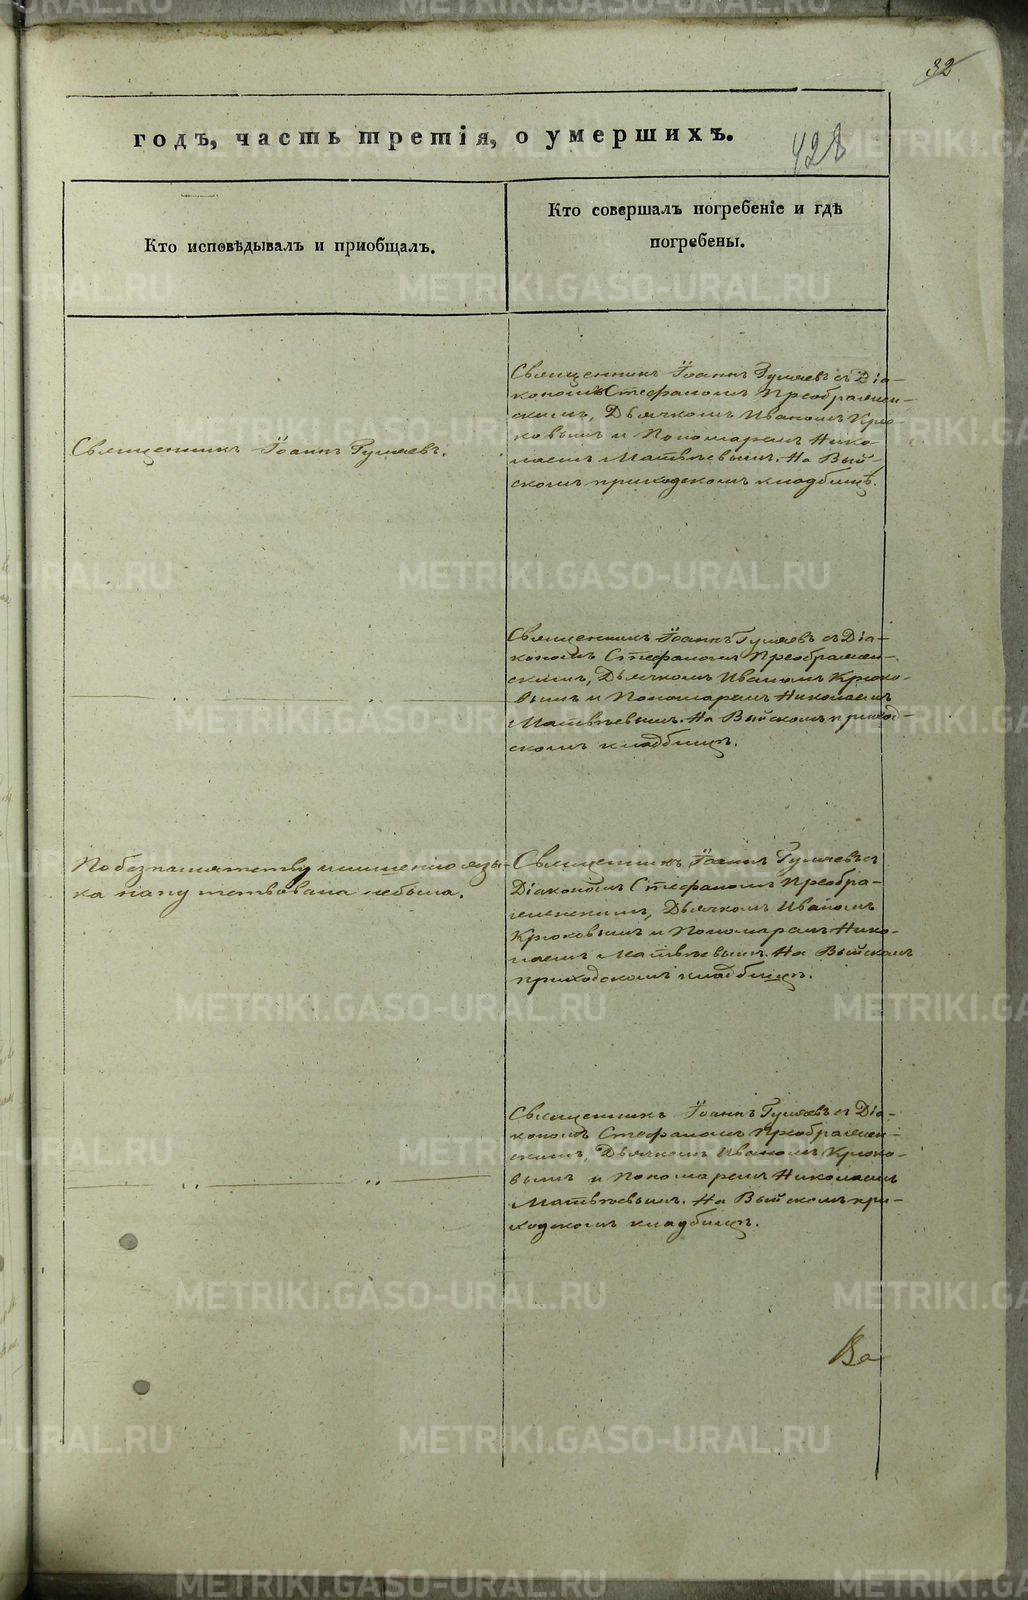 32
годъ, часть третія, о умершихъ.
428
Кто исповѣдывалъ и приобщалъ.
Кто совершалъ погребеніе и гдѣ
погребены.
Священникъ Іоаннъ Гуляевъ.
Священникъ Іоаннъ Гуляевъ съ Діа-
кономъ Стефаномъ Преображен-
скимъ, Дьячкомъ Иваномъ Крю-
ковымъ и Пономаремъ Нико-
лаемъ Матвѣевымъ. На Вый-
скомъ приходскомъ кладбищѣ.
Священникъ Іоаннъ Гуляевъ съ Діа-
кономъ Стефаномъ Преображен-
скимъ, Дьячкомъ Иваномъ Крюко-
вымъ и Пономаремъ Николаемъ
Матвѣевымъ. На Выйскомъ приход-
скомъ кладбищѣ.
По безпамятству и лишенію язы-
ка напутствована небыла.
Священникъ Іоаннъ Гуляевъ съ
Діакономъ Стефаномъ Преобра-
женскимъ, Дьячкомъ Иваномъ
Крюковымъ и Пономаремъ Нико-
лаемъ Матвѣевымъ. На Выйскомъ
приходскомъ кладбищѣ.
Священникъ Іоаннъ Гуляевъ съ Діа-
кономъ Стефаномъ Преображен-
скимъ, Дьячкомъ Иваномъ Крюко-
вымъ и Пономаремъ Николаемъ
Матвѣевымъ. На Выйскомъ при-
ходскомъ кладбищѣ.
Ва
METRIKI.GASO-URAL.RU